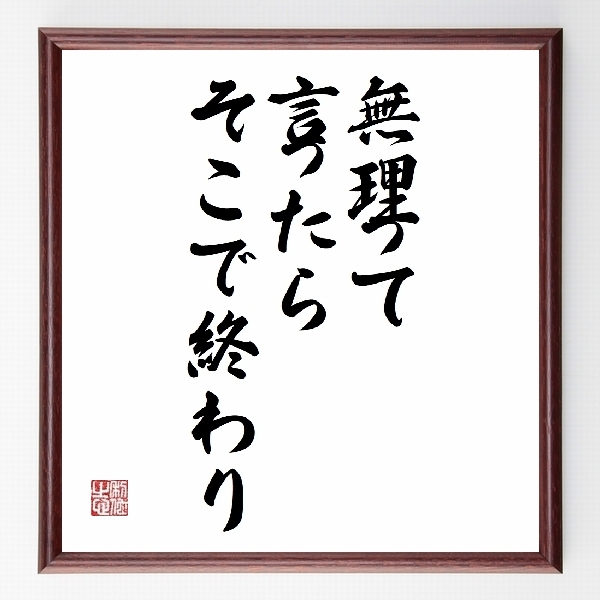 無理って
言ったら
そこで終わり